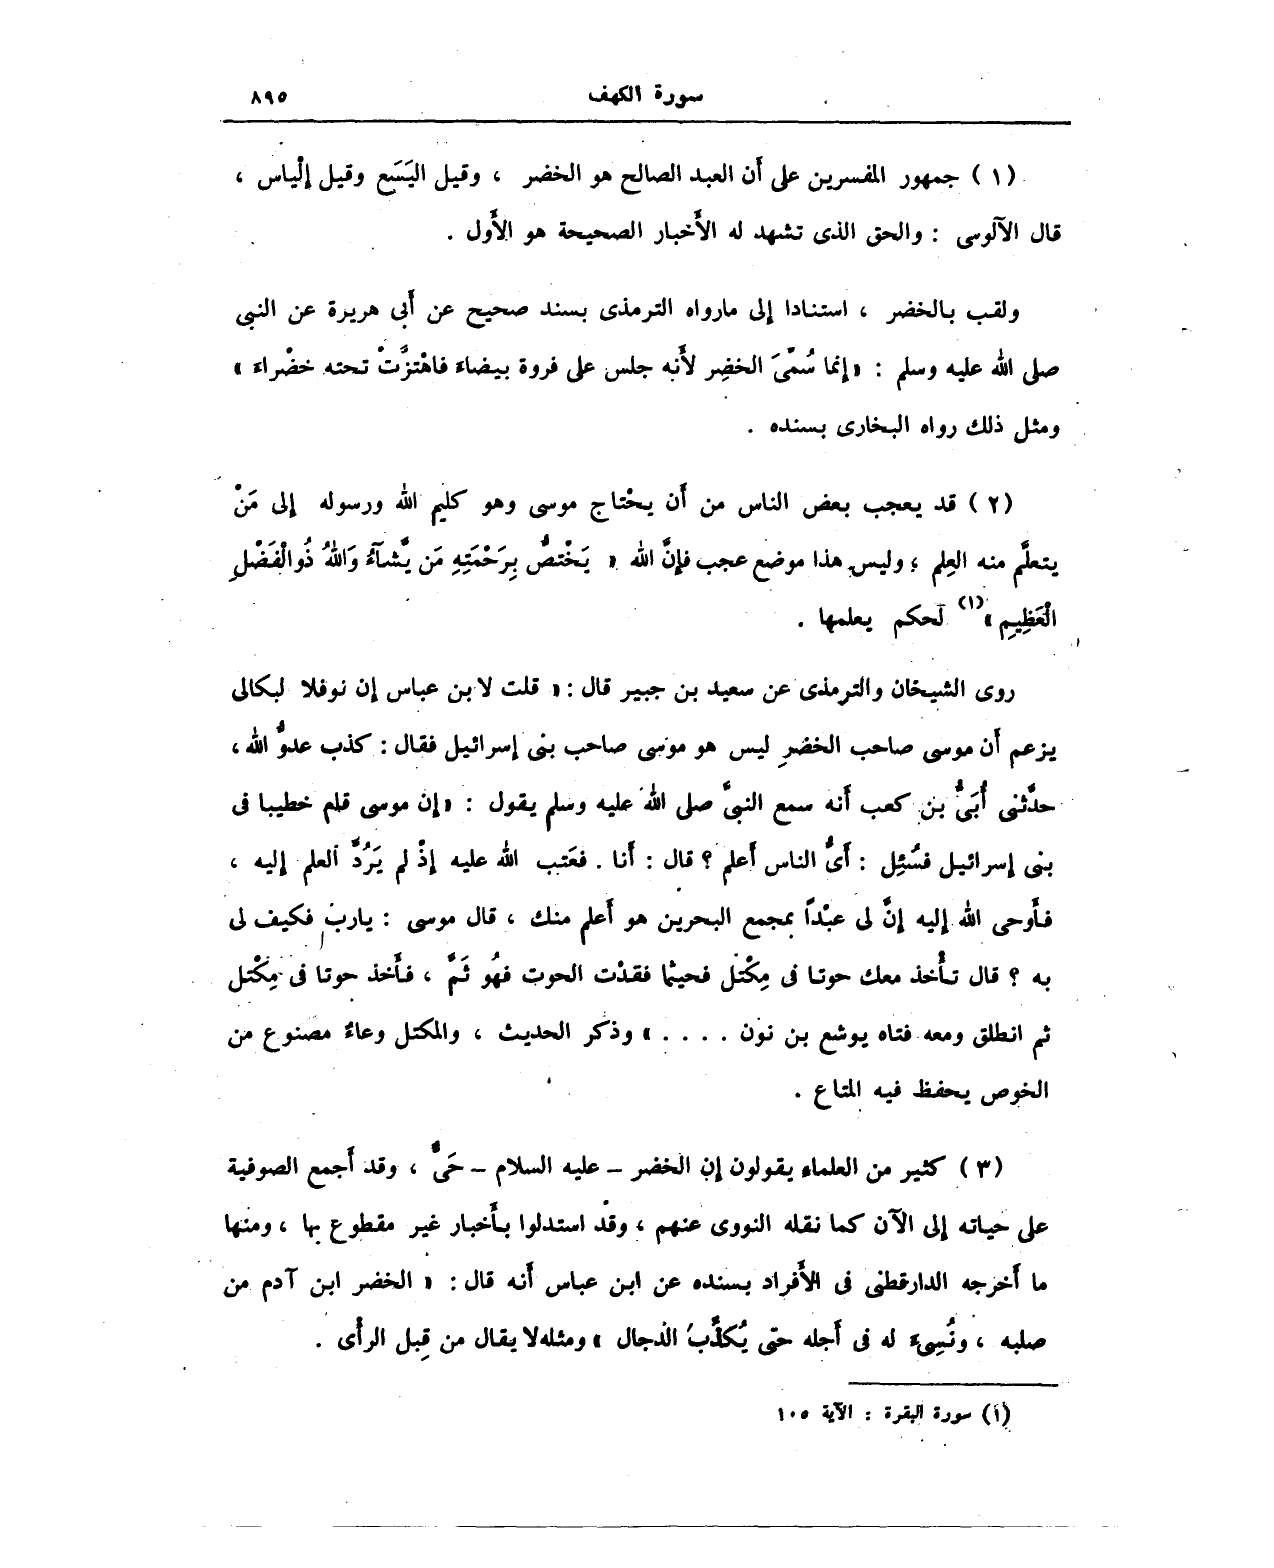 سورة الكهف ٨٩٥
(١) جمهور المفسرين على أن العبد الصالح هو الخضر ، وقيل اليَسَع وقيل إلْياس ،
قال الآلوسى : والحق الذى تشهد له الأخبار الصحيحة هو الأول .
ولقب بالخضر ، استنادا إلى مارواه الترمذى بسند صحيح عن أبى هريرة عن النبى
صلى الله عليه وسلم : «إنما سُمِّىَ الخضِر لأنه جلس على فروة بيضاء فاهْتزَّتْ تحته خضْراء »
ومثل ذلك رواه البخارى بسنده .
(٢) قد يعجب بعض الناس من أن يحْتاج موسى وهو كليم الله ورسوله إلى مَنْ
يتعلَّم منه العِلم ؛ وليس هذا موضع عجب فإنَّ الله « يَخْتصُّ بِرَحْمَتِهِ مَن يَّشآءُ وَاللهُ ذُوالْفَضْلِ
الْعَظِيمِ »(١) لحكم يعلمها .
روى الشيخان والترمذى عن سعيد بن جبير قال : « قلت لابن عباس إن نوفلا لبكالى
يزعم أن موسى صاحب الخضرِ ليس هو موسى صاحب بنى إسرائيل فقال : كذب عدوُّ الله ،
حدَّثنى أُبَىُّ بن كعب أنه سمع النبىَّ صلى الله عليه وسلم يقول : «إن موسى قلم خطيبا فى
بنى إسرائيل فسُئِل : أىُّ الناس أعلم ؟ قال : أنا . فعَتب الله عليه إذْ لم يَرُدَّ العلم إليه ،
فأوحى الله إليه إنَّ لى عبْداً بمجمع البحرين هو أعلم منك ، قال موسى : يارب فكيف لى
به ؟ قال تأْخذ معك حوتا فى مِكْتل فحيثما فقدْت الحوت فهُو ثَمَّ ، فأخذ حوتا فى مِكْتل
ثم انطلق ومعه فتاه يوشع بن نون . . . . » وذكر الحديث ، والمكتل وعاءٌ مصنوع من
الخوص يحفظ فيه المتاع .
(٣) كثير من العلماء يقولون إن الخضر – عليه السلام – حَىٌّ ، وقد أجمع الصوفية
على حياته إلى الآن كما نقله النووى عنهم ، وقد استدلوا بأخبار غير مقطوع بها ، ومنها
ما أخرجه الدارقطنى فى الأفراد بسنده عن ابن عباس أنه قال : « الخضر ابن آدم من
صلبه ، ونُسِىء له فى أجله حتى يُكذَّب الدجال » ومثله لا يقال من قِبل الرأْى .
(١) سورة البقرة : الآية ١٠٥